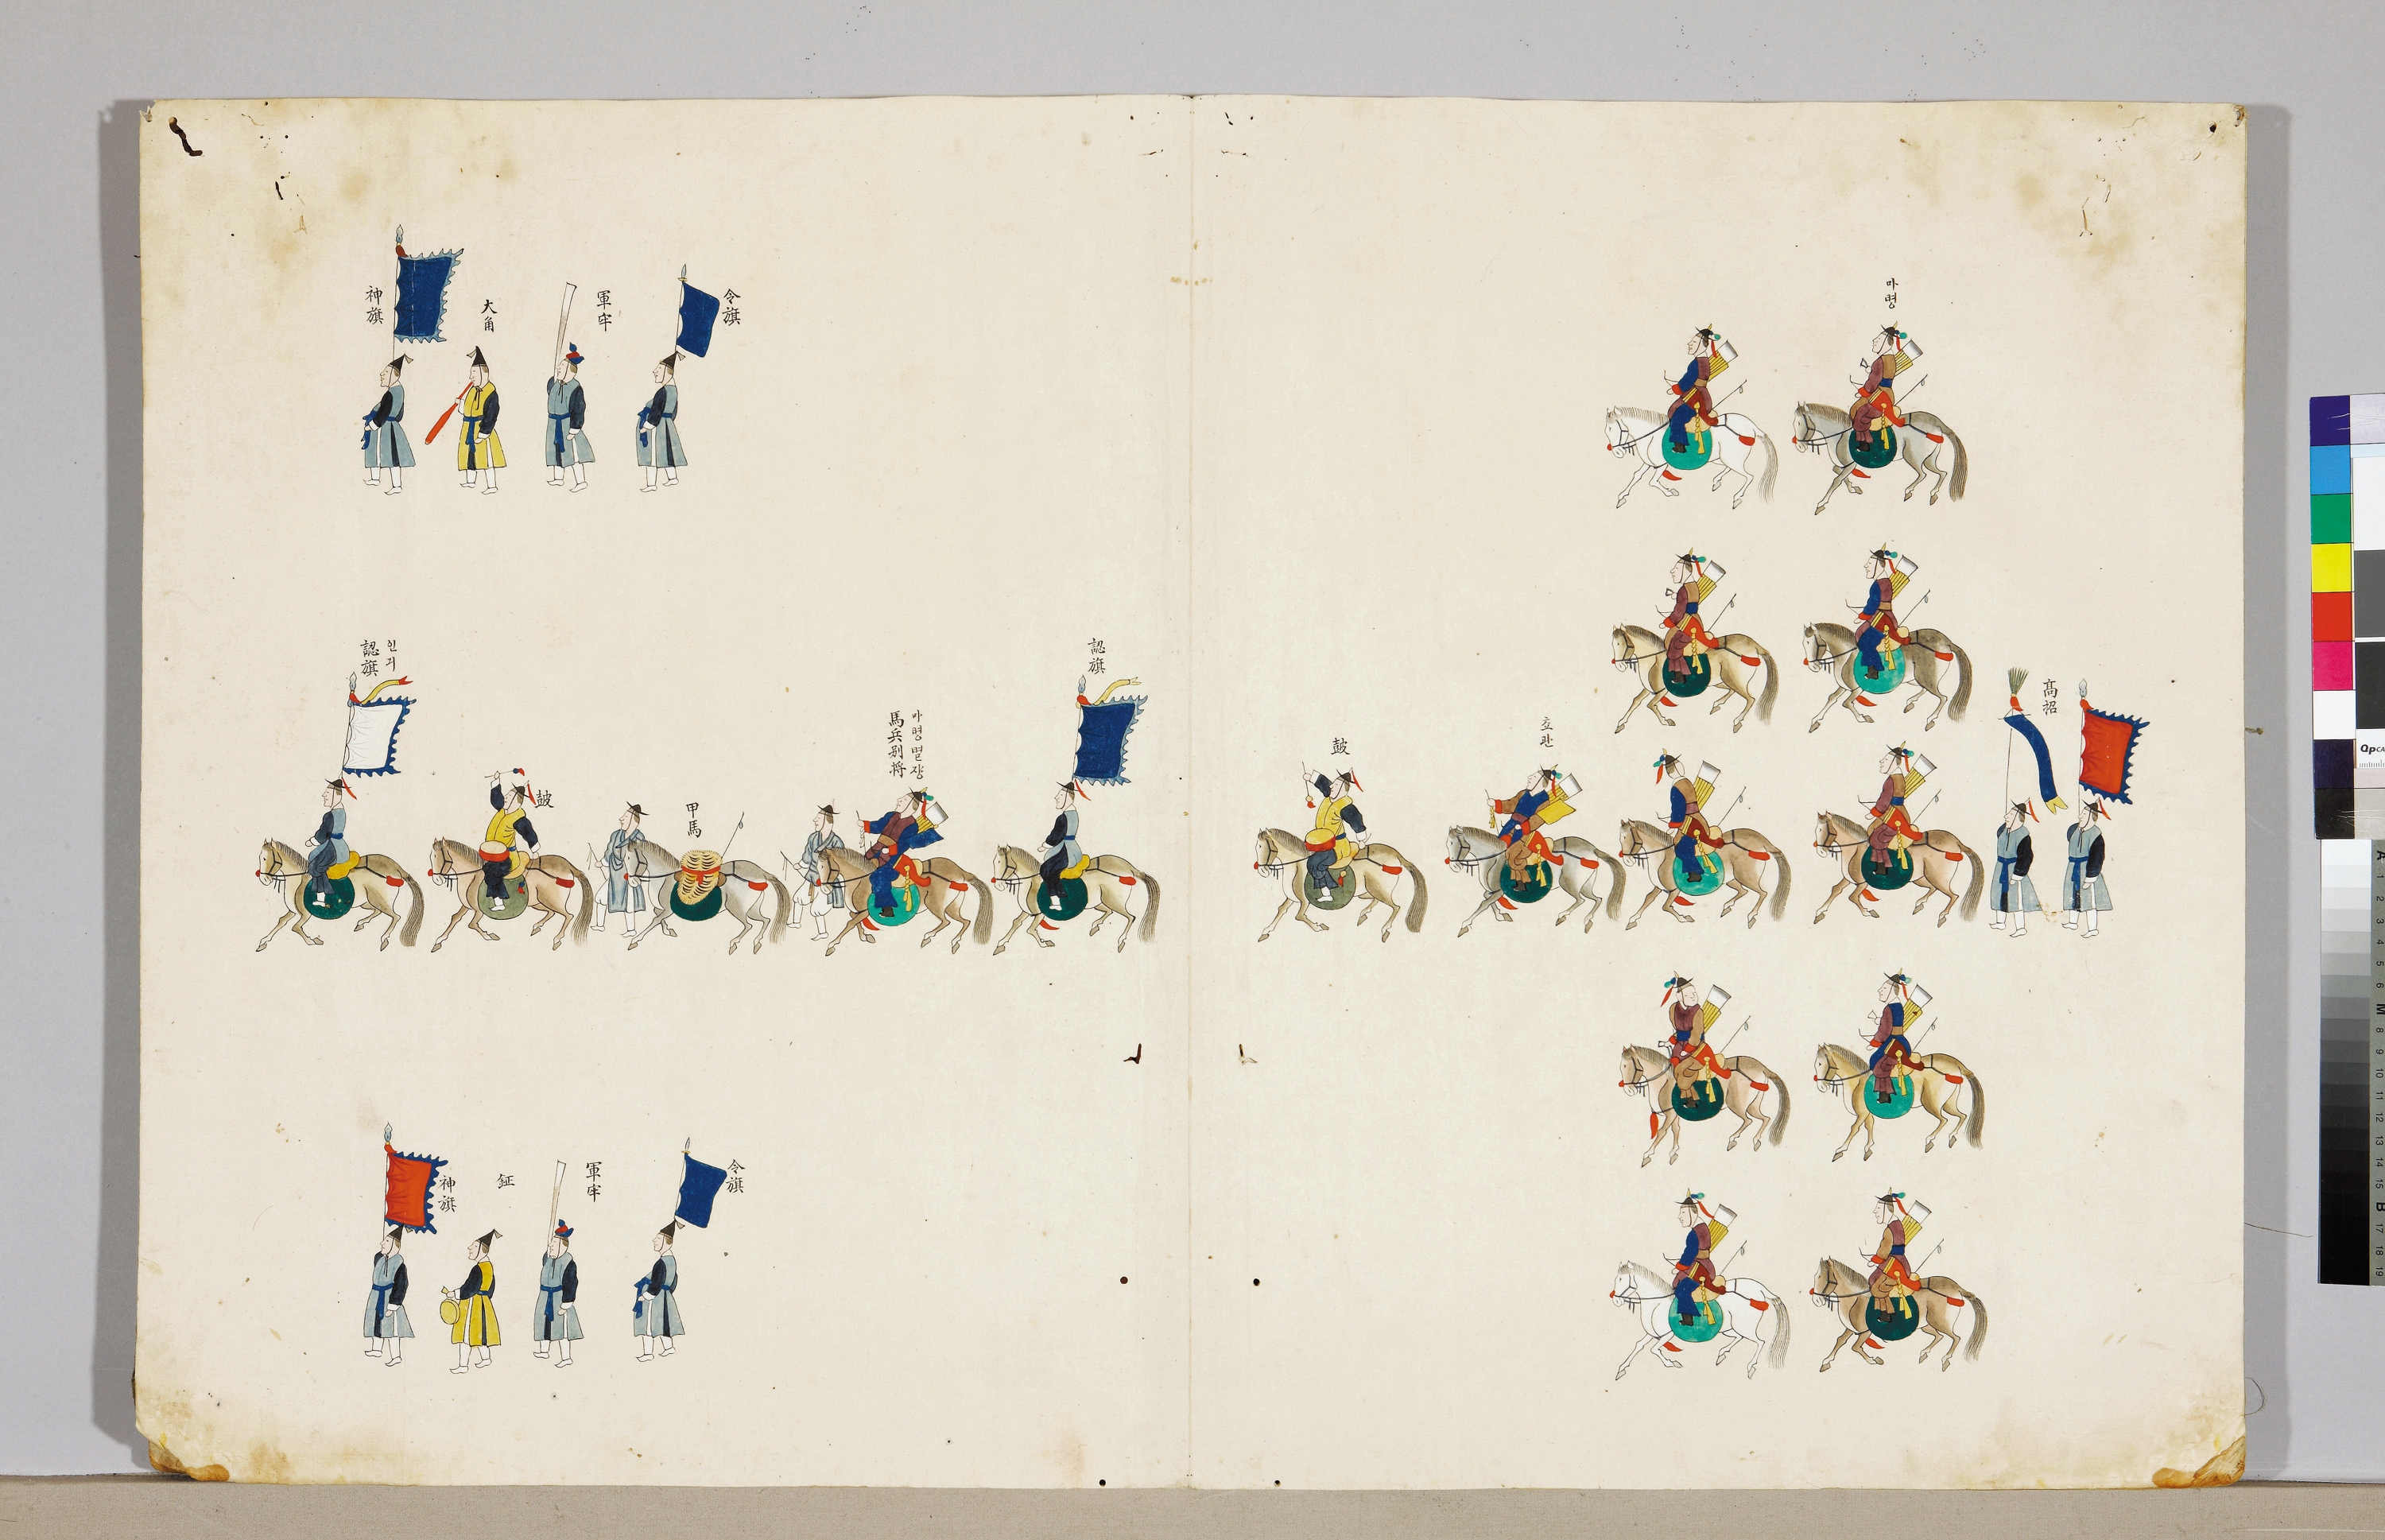 神旗
大角
軍牢
令旗
마병
認旗
인기
皷
甲馬
馬兵別將
마병별쟝
認旗
皷
초관
髙招
神旗
鉦
軍牢
令旗